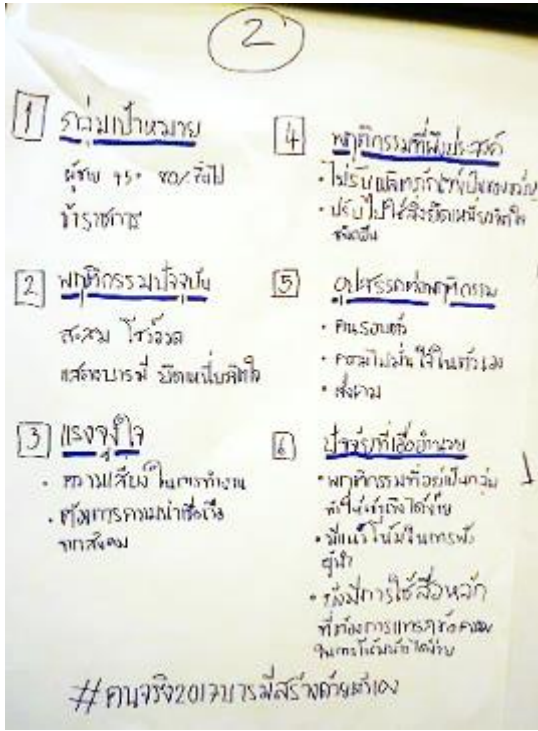 2
1 กลุ่มเป้าหมาย
ผู้ชาย 45+ 80% ขึ้นไป
ข้าราชการ
2 พฤติกรรมปัจจุบัน
สะสม โชว์อวด
แสดงบารมี ยึดเหนี่ยวจิตใจ
3 แรงจูงใจ
• ความเสี่ยงในการทำงาน
• ต้องการความน่าเชื่อถือ
จากสังคม
4 พฤติกรรมที่พึงประสงค์
• ไม่รับผลิตภัณฑ์เป็นของขวัญ
• ปรับไปใช้สิ่งยึดเหนี่ยวจิตใจ
ชนิดอื่น
5 อุปสรรคต่อพฤติกรรม
• คนรอบตัว
• ความไม่มั่นใจในตัวเอง
• สังคม
6 ปัจจัยที่เอื้ออำนวย
• พฤติกรรมที่อยู่เป็นกลุ่ม
ทำให้เข้าถึงได้ง่าย
• มีแนวโน้มในการฟัง
ผู้นำ
• ยังมีการใช้สื่อหลัก
ที่ต้องการ
ในการ ได้ง่าย
#คนจริง2017บารมีสร้างด้วยตัวเอง